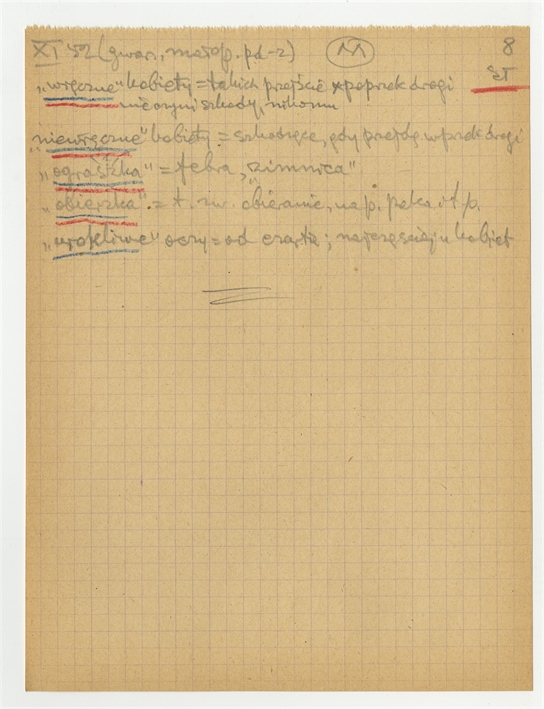 XI 52 (gwar., małop. pd-z) 11 8
ET
„wręczne" kobiety = takich przejście wpoprzek drogi
nie czyni szkody, nikomu
„niewręczne" kobiety = szkodzące, gdy przejdą wprzek drogi
„ograszka" = febra, „zimnica"
„obierzka" = t. zw. obieranie, nap. palca i t p.
„urokliwe" oczy = od czarta; najczęściej u kobiet